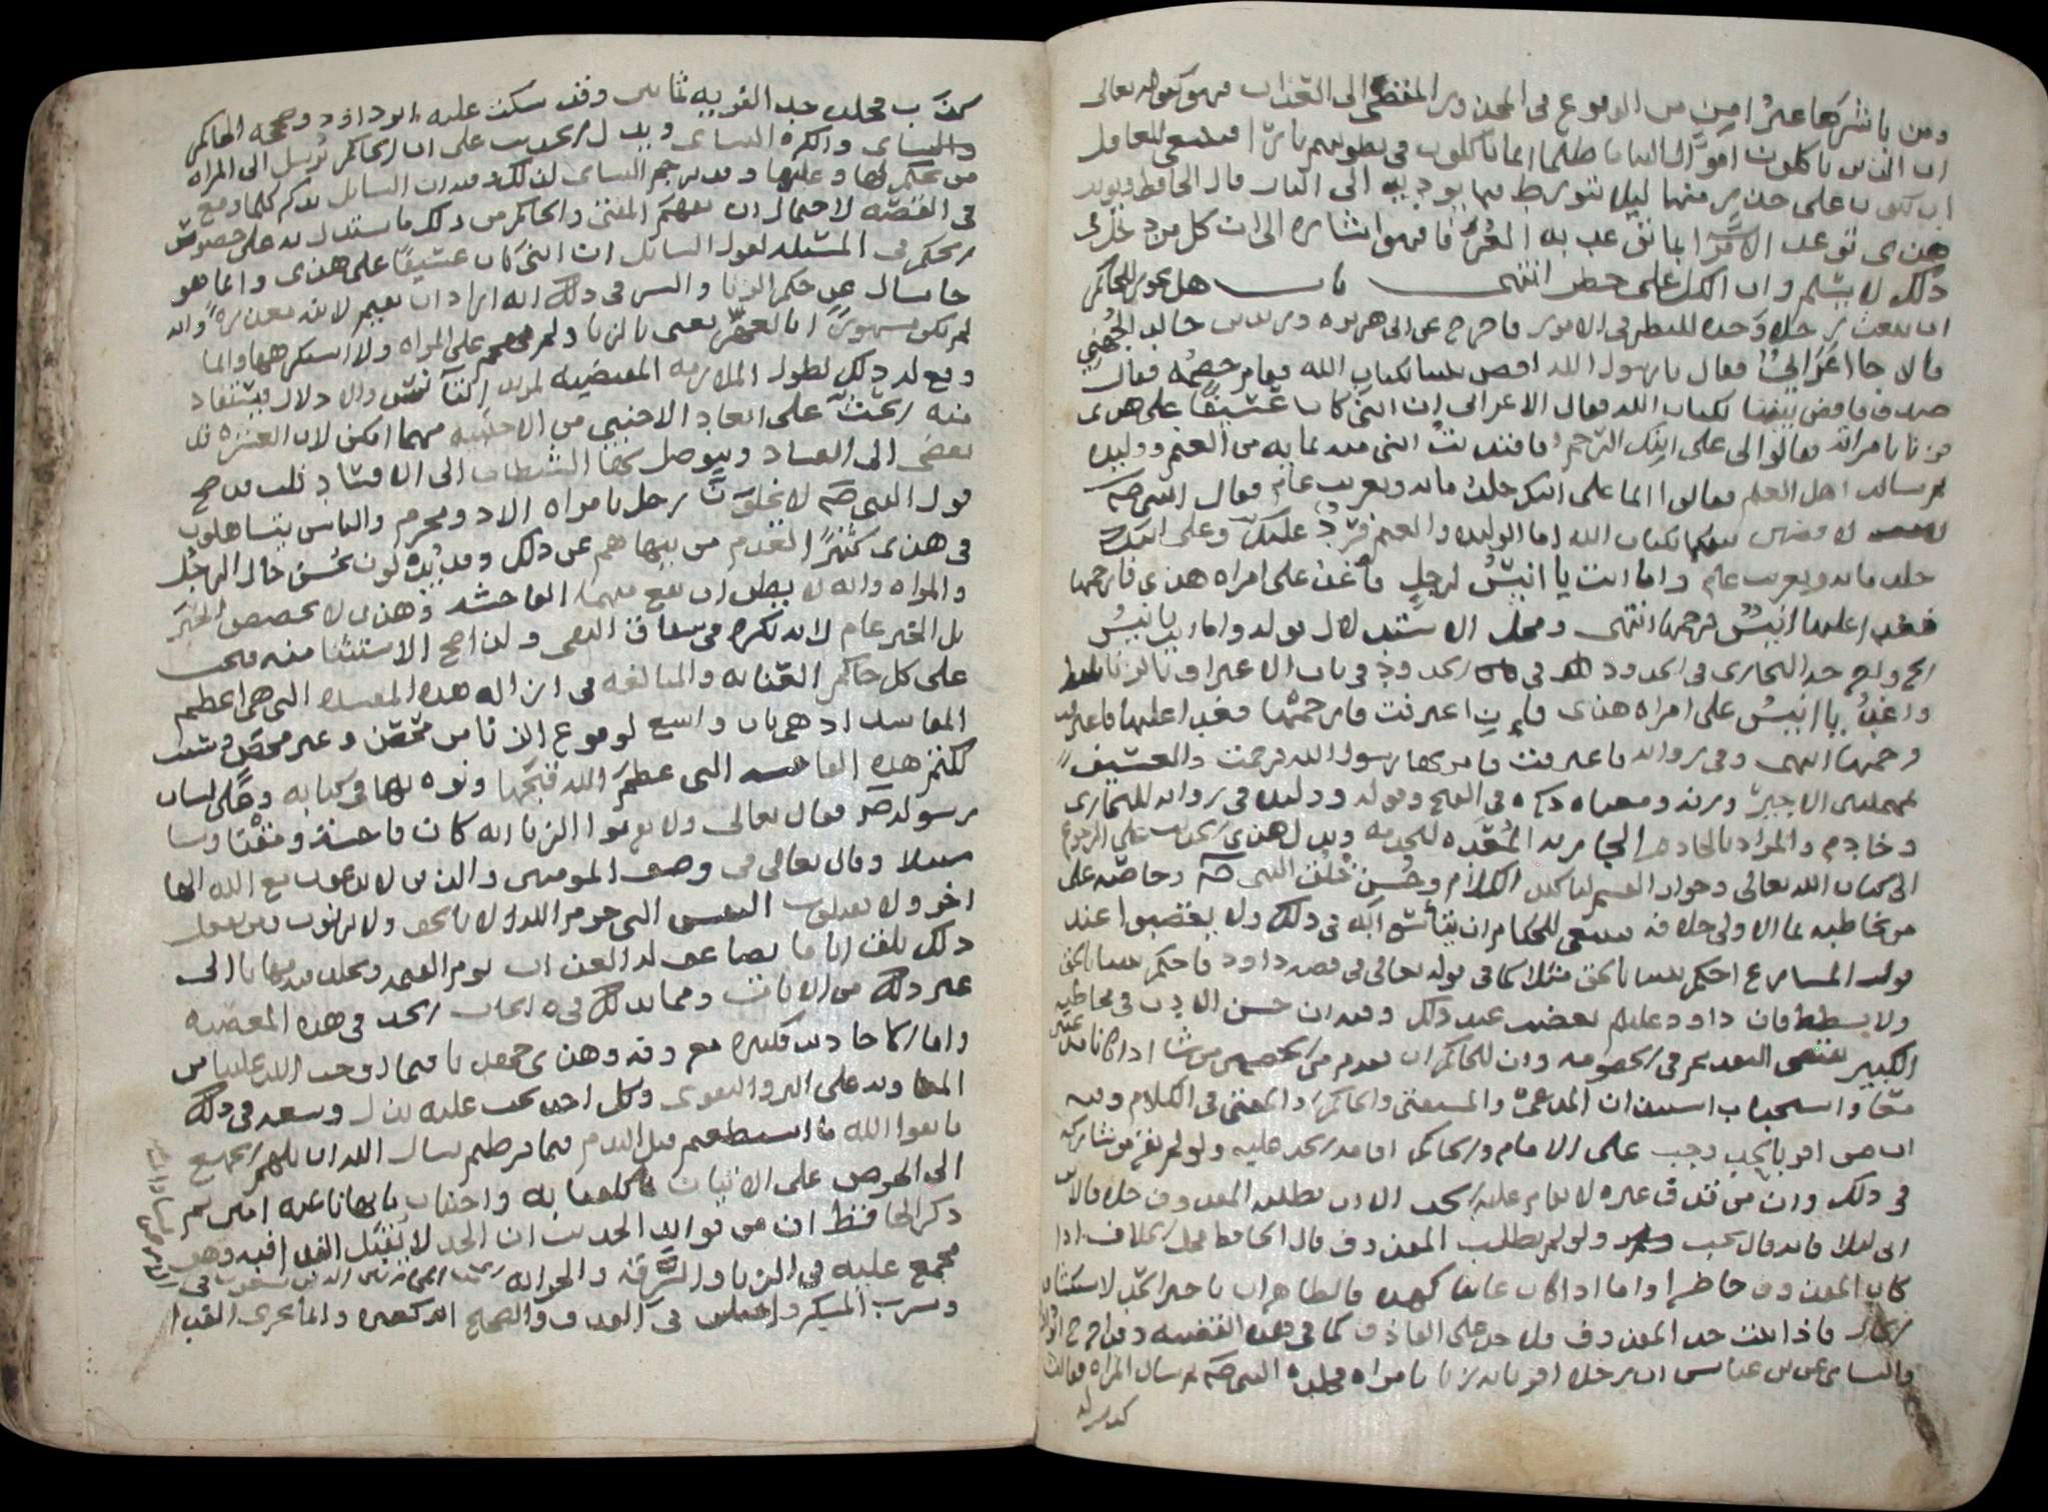 ومن باشرها غير امن من الوقوع في المحذور المفضي الى العذاب فهو كقوله تعالى
ان الذين ياكلون اموال اليتامى ظلما انما ياكلون في بطونهم نارا فينبغي للعامل
ان يكون على حذر منها ليلا يتورط فيما يوديه الى النار قال الحافظ ويويد
هذى توعد الاخرة انما توعد به المعرفا فهو اشاره الى ان كل من دخل في
ذلك لا يسلم وان الكل على خطر انتهى باب هل يجوز للحاكم
ان يبعث رجلا وحده للنظر في الامور فاخرج عن ابى هريره وزيد بن خالد الجهني
قالا جا اعرابيٌ فقال يا رسول الله اقض بيننا بكتاب الله فقام خصمه فقال
صدق فاقض بيننا بكتاب الله فقال الاعرابي ان ابنى كان عسيفا على هذى
فزنا بامراته فقالوا لى على ابنك الرجم فافتديت ابنى منه بمايه من الغنم ووليده
ثم سالت اهل العلم فقالوا انما على ابنك جلد مايه وتغريب عام فقال النبي صلم
لاقضين بينكما بكتاب الله اما الوليده والغنم فردٌ عليك وعلى ابنك
جلد مايه وتغريب عام واما انت يا انيسُ لرجل فاغد على امراه هذى فارجمها
فغدا عليها انيسٌ فرجمها انتهى ومحل الاستدلال قوله واما انت يا انيسُ
الخ واخرجه البخارى في الحدود في باب الاعتراف بالزنا بلفظ
واغدُ يا انيسُ على امراه هذى فان اعترفت فارجمها فغدا عليها فاعترفت
فرجمها انتهى وفي روايه فاعترفت فامر بها رسول الله فرجمت والعسيف
بمهملتين الاجير وزنه ومعناه ذكره في الفتح وقوله ووليده في روايه للبخارى
وخادم والمراد بالخادم الجاريه المُعَدّه للخدمه ويدل هذى الحديث على الرجوع
الى كتاب الله تعالى وجواز القسم لتاكيد الكلام وحُسن خُلُق النبي صلم وحلمه على
من يخاطبه بما الاولى خلافه فينبغى للحكام ان يتاسّى به في ذلك ولا يغضبوا عند
قول المسارع احكم بيننا بالحق مثلا كما في قوله تعالى في قصه داود فاحكم بيننا بالحق
ولا تشطط فان داود عليلم لم يغضب عند ذلك وفيه ان حسن الادب في مخاطبه
الكبير يقتضى التقديم في الخصومه وان للحاكم ان يقدم من الخصمين من شا اذا كانا
معا واستحباب استيذان المدعى والمستفتى والحاكم والمفتى في الكلام وفيه
ان من اقر بالحد وجب على الامام والحاكم اقامه الحد عليه ولو لم يقر من شاركه
في ذلك وان من قذف غيره لا يقام عليه الحد الا ان يطلبه المقذوف خلافا لابن
ابى ليلا فانه قال يجب ولو لم يطلب المقذوف قال الحافظ محل الخلاف اذا
كان المقذوف حاظرا واما اذا كان غايبا كهذه فالظاهر ان تاخير الحد لاستكشاف
الحال فاذا ثبت حد المقذوف فلا حد على القاذف كما في هذه القضيه وقد اخرج ابو داود
والنساى عن ابن عباس ان رجلا اقر بانه زنا بامراه فجلده النبي صلم ثم سال المراه فقالت
كذب
كذب فجلده حد الفريه ثمانين وقد سكت عليه ابو داود وصححه الحاكم
والنساى وانكره النساى ويدل الحديث على ان الحاكم يُرسل الى المراه
من يحكم لها وعليها وقد ترجم النساى لذلك وفيه ان السايل يذكر كلما وقع
في القصّه لاحتمال ان يفهم المفتى والحاكم من ذلك ما يستدل به على خصوص
الحكم في المسئله لقول السايل ان ابنى كان عسيفا على هذى وانما هو
جا يسال عن حكم الزنا والسر في ذلك انه اراد ان يقيم لابنه معذرةً وانه
لم يكن مشهورا بالعهر يعنى بالزنا ولم يهجم على المراه ولا استكرهها وانما
وقع له ذلك لطول الملازمه المقتضيه لمزيد التانس والادلال فيستفاد
منه الحثّ على ابعاد الاجنبي من الاجنبيه مهما امكن لان العشره قد
تفضى الى الفساد ويتوصل بها الشيطان الى الافساد قلت قد صح
قول النبي صلم لا يخلوَنّ رجل بامراه الا ذو محرم والناس يتساهلون
في هذى كثيرًا لعدم من ينهاهم عن ذلك وقد يريدون بحُسن حال الرجُل
والمراه وانه لا يظن ان تقع منهما الفاحشه وهذى لا يخصص الخبَر
بل الخبر عام لانه نكره في سياق النفى ولذا صح الاستثنا منه فيجب
على كل حاكم العنايه والمبالغه في ازاله هذه المفسده التى هي اعظم
المفاسد اذ هى باب واسع لوقوع الزنا من محصَن وغير محصَن وتشتد
لكثر هذه الفاحشه التى عظّم الله قبحَها ونوه بها في كتابه وعلى لسان
رسوله صلم فقال تعالى ولا تقربوا الزنا انه كان فاحشة ومقتا وسا
سبيلا وقال تعالى في وصف المومنين والذين لا يدعون مع الله الها
اخر ولا يقتلون النفس التى حرم الله الا بالحق ولا يزنون ومن يفعل
ذلك يلق اثاما يضاعف له العذاب يوم القيمه ويخلد فيه مهانا الى
غير ذلك من الايات ومما يدلك في ايجاب الحد في هذه المعصيه
واما الاحاديث فكثيره معروفه وهذى جميعه فيما اوجب الله علينا من
المعاونه على البر والتقوى وكل احد يجب عليه بذل وسعه في ذلك
فاتقوا الله ما استطعتم قبل الندم فيما فرطتم نسال الله ان يلهم الجميع
الى الحرص على الاتيان بما كلفنا به واجتناب ما نهانا عنه امين ثم
ذكر الحافظ ان من فوايد الحديث ان الحد لا يقبل الفدا فيه وهو
مجمع عليه في الزنا والسّرقه والحرابه
وشرب المسكر واختلف في القذف والصحيح انه كغيره وانما يجرى الفدا